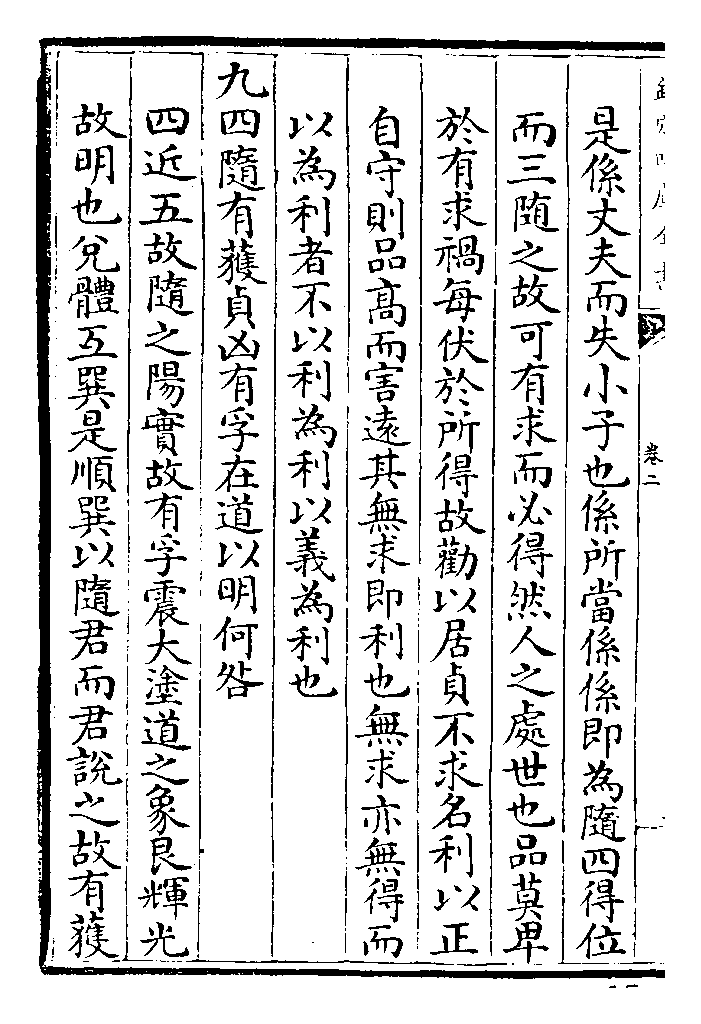 是係丈夫而失小子也係所當係係即為隨四得位
而三随之故可有求而必得然人之處世也品莫卑
於有求禍每伏於所得故勸以居貞不求名利以正
自守則品髙而害逺其無求即利也無求亦無得而
以為利者不以利為利以義為利也
九四隨有獲貞凶有孚在道以明何咎
四近五故隨之陽實故有孚震大塗道之象艮輝光
故明也兊體互巽是順巽以隨君而君說之故有獲
卷二